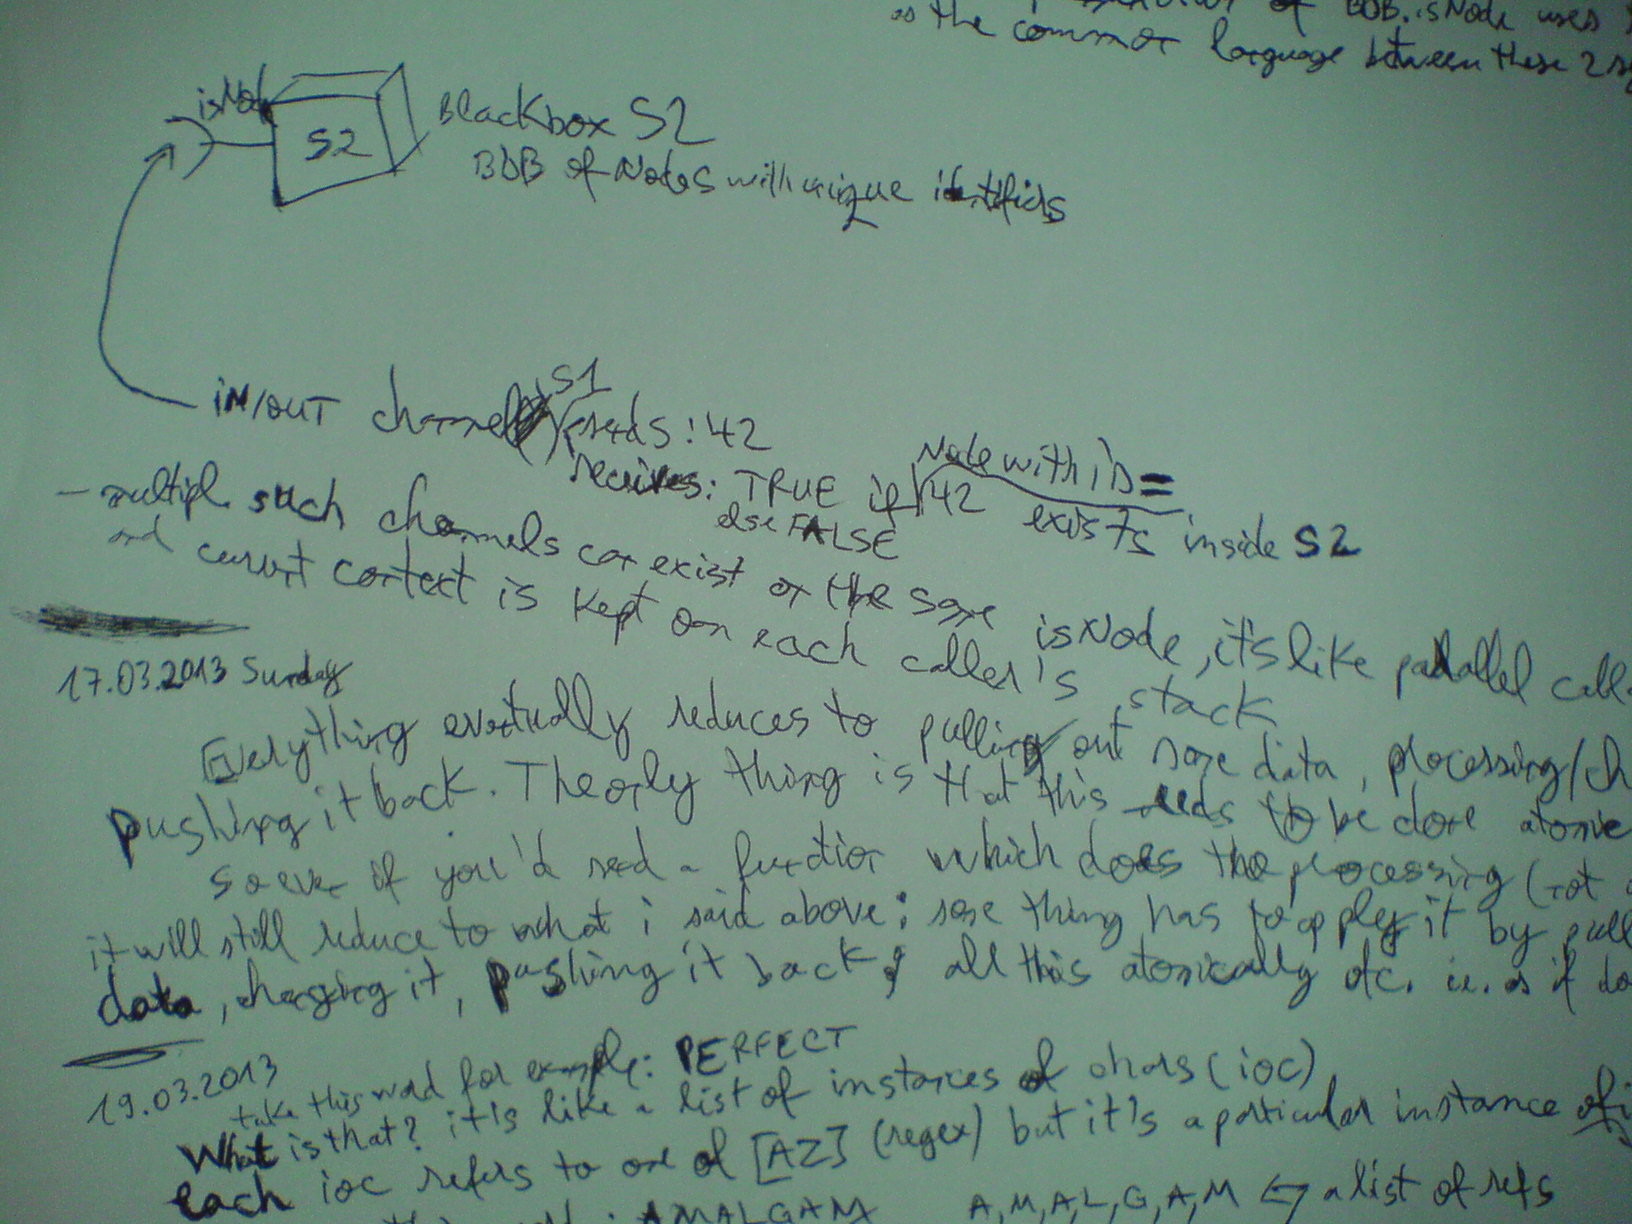 of BDB. isNode uses
as the common language between these 2
isNode
S2
Blackbox S2
BDB of Nodes with unique identifiers
S1
iN/OUT channel sends: 42
receives: TRUE if Node with ID = 42 exists inside S2
else FALSE
- multiple such channels can exist on the same isNode, it's like parallel call
and current context is kept on each caller's stack
17.03.2013 Sunday
Everything eventually reduces to pulling out some data, processing/ch
pushing it back. The only thing is that this needs to be done atomic
so even if you'd need a function which does the processing (not
it will still reduce to what i said above; some thing has to apply it by pull
data, changing it, pushing it back; all this atomically etc. i.e. as if do
19.03.2013
take this word for example: PERFECT
What is that? it's like a list of instances of chars (ioc)
each ioc refers to one of [AZ] (regex) but it's a particular instance of
: AMALGAM A,M,A,L,G,A,M <-> a list of refs